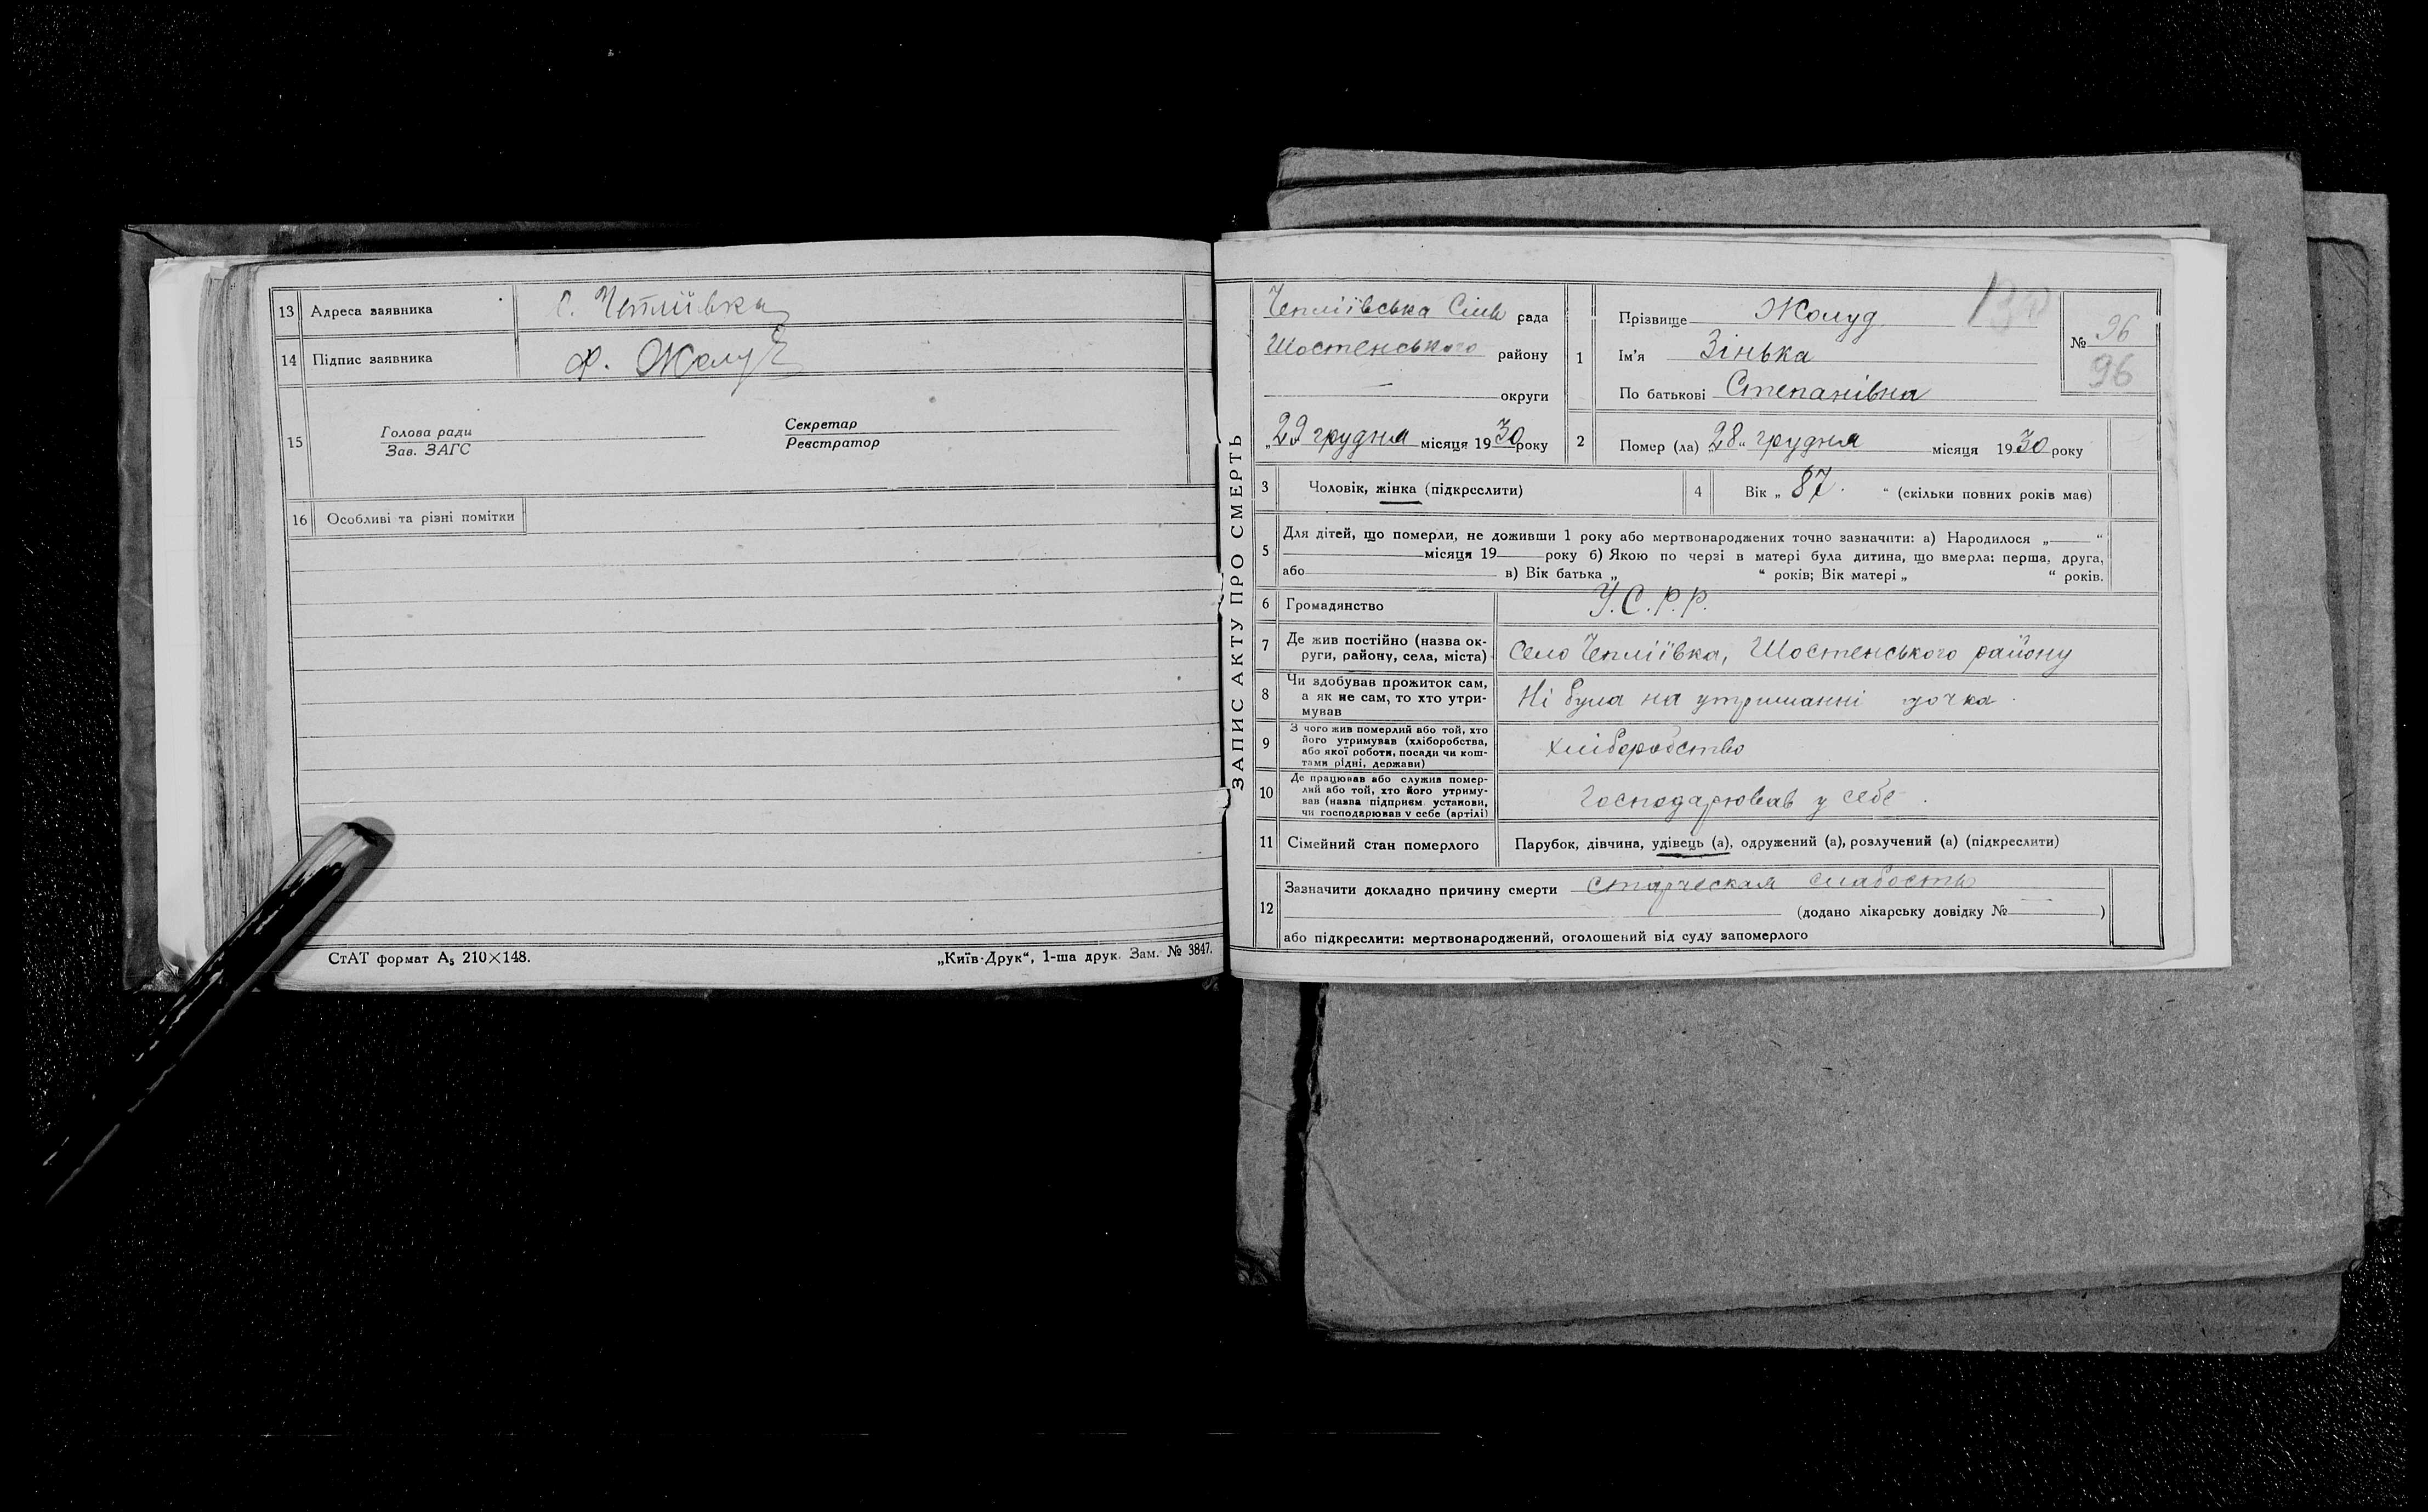 13 Адреса заявника с. Чепліївка
14 Підпис заявника Ф. Жолуд
15 Голова ради Секретар
Зав. ЗАГС Реєстратор
16 Особливі та різні помітки
СтАТ формат А₅ 210×148. „Київ-Друк“, 1-ша друк. Зам. № 3847.
ЗАПИС АКТУ ПРО СМЕРТЬ
Чепліївська Сіль рада
Шостенського району
— округи
„29 грудня місяця 1930 року
1 Прізвище Жолуд
Ім'я Зінька
По батькові Степанівна
130
№ 96
96
2 Помер (ла) „28“ грудня місяця 1930 року
3 Чоловік, жінка (підкреслити)
4 Вік „ 87. “ (скільки повних років має)
5 Для дітей, що померли, не доживши 1 року або мертвонароджених точно зазначити: а) Народилося „ “
місяця 19 року б) Якою по черзі в матері була дитина, що вмерла: перша, друга,
або в) Вік батька „ “ років; Вік матері „ “ років.
6 Громадянство У.С.Р.Р.
7 Де жив постійно (назва ок-
руги, району, села, міста) Село Чепліївка, Шостенського району
8 Чи здобував прожиток сам,
а як не сам, то хто утри-
мував Ні була на утриманні дочка
9 З чого жив померлий або той, хто
його утримував (хліборобства,
або якої роботи, посади чи кош-
тами рідні, держави) хліборобство
10 Де працював або служив помер-
лий або той, хто його утриму-
вав (назва підприєм. установи,
чи господарював у себе (артілі) Господарював у себе.
11 Сімейний стан померлого Парубок, дівчина, удівець (а), одружений (а), розлучений (а) (підкреслити)
12 Зазначити докладно причину смерти старческая слабость
(додано лікарську довідку № — )
або підкреслити: мертвонароджений, оголошений від суду запомерлого